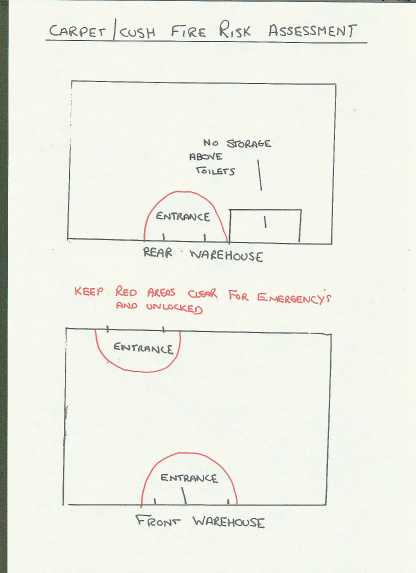 CARPET/CUSH FIRE RISK ASSESSMENT
NO STORAGE
ABOVE
TOILETS
ENTRANCE
REAR WAREHOUSE
KEEP RED AREAS CLEAR FOR EMERGENCY'S
AND UNLOCKED
ENTRANCE
ENTRANCE
FRONT WAREHOUSE